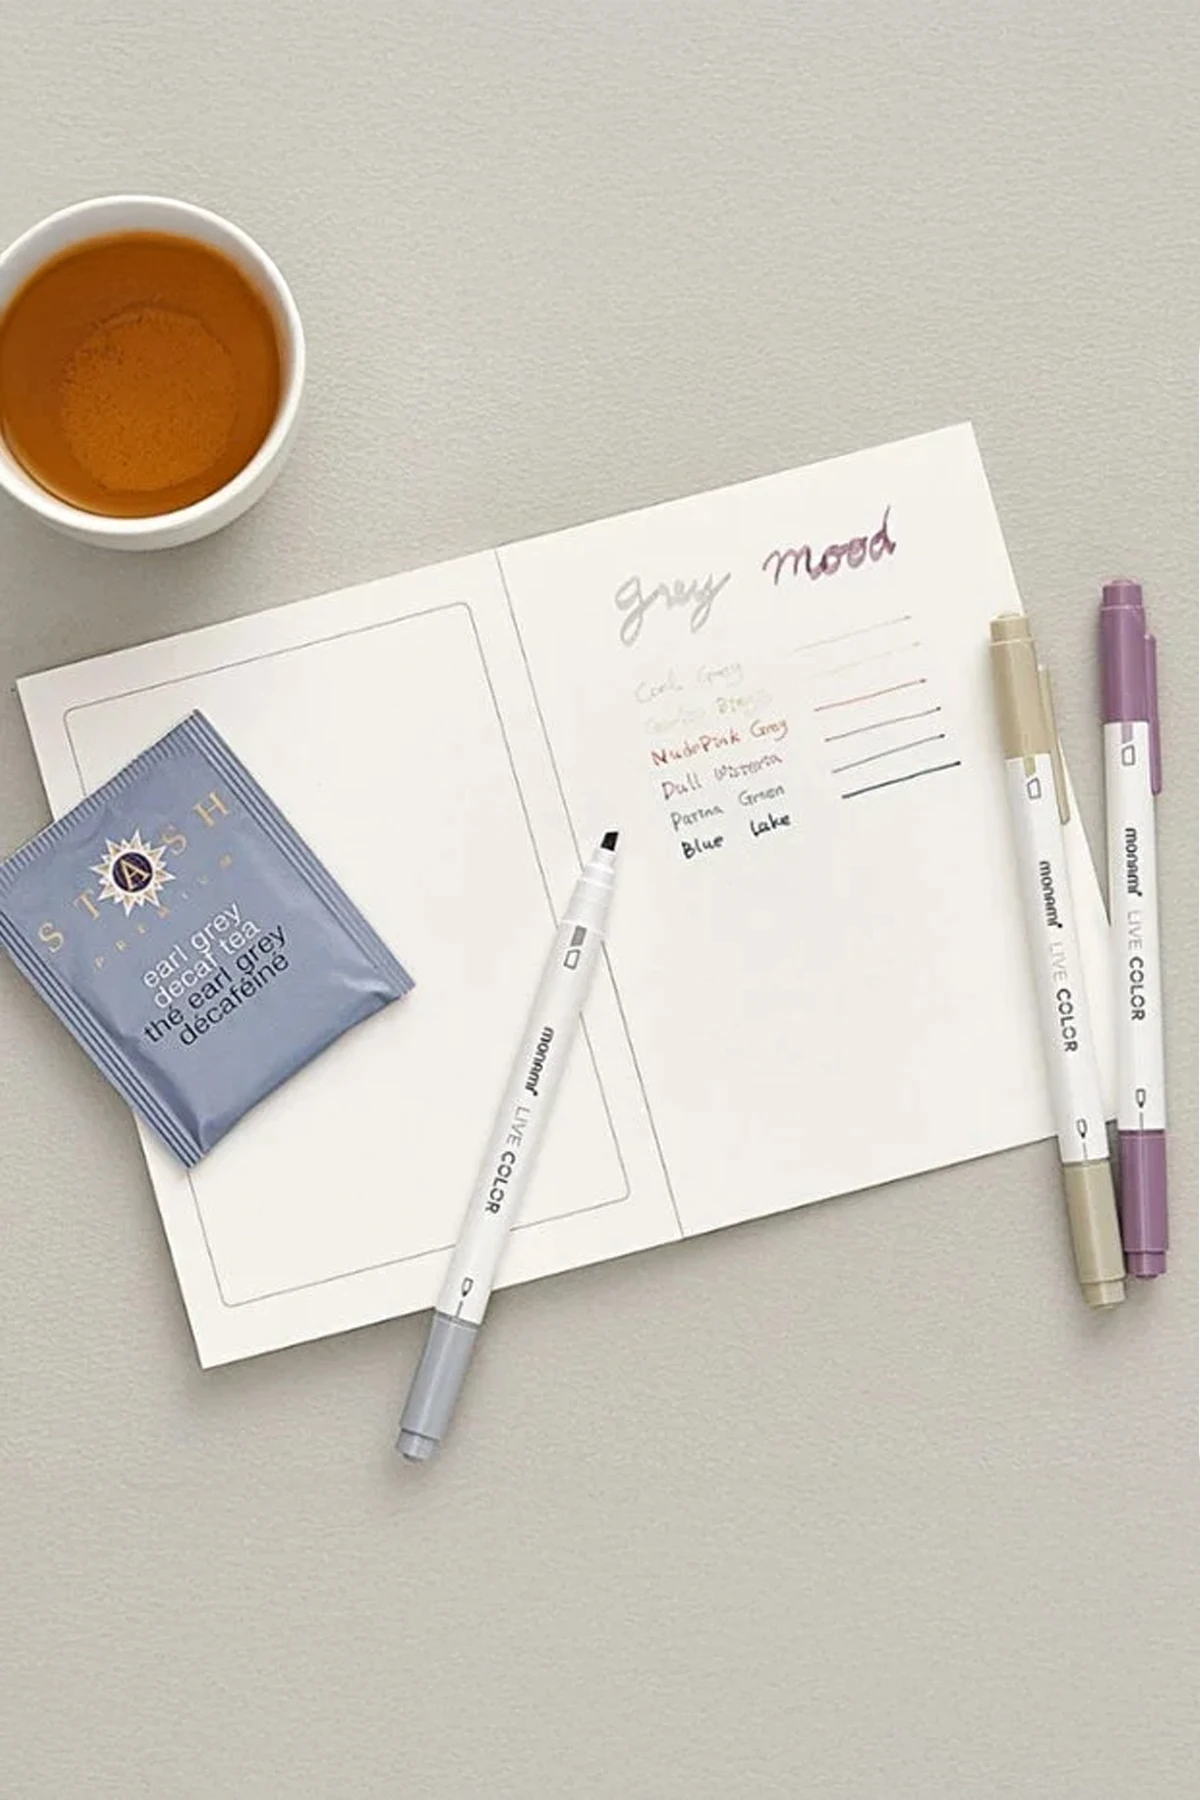 grey mood
Cool Grey
Beige
NudePink Grey
Dull Wisteria
Parma Green
Blue Lake
STASH
PREMIUM
earl grey
decaf tea
thé earl grey
décaféiné
monami LIVE COLOR
monami LIVE COLOR
monami LIVE COLOR